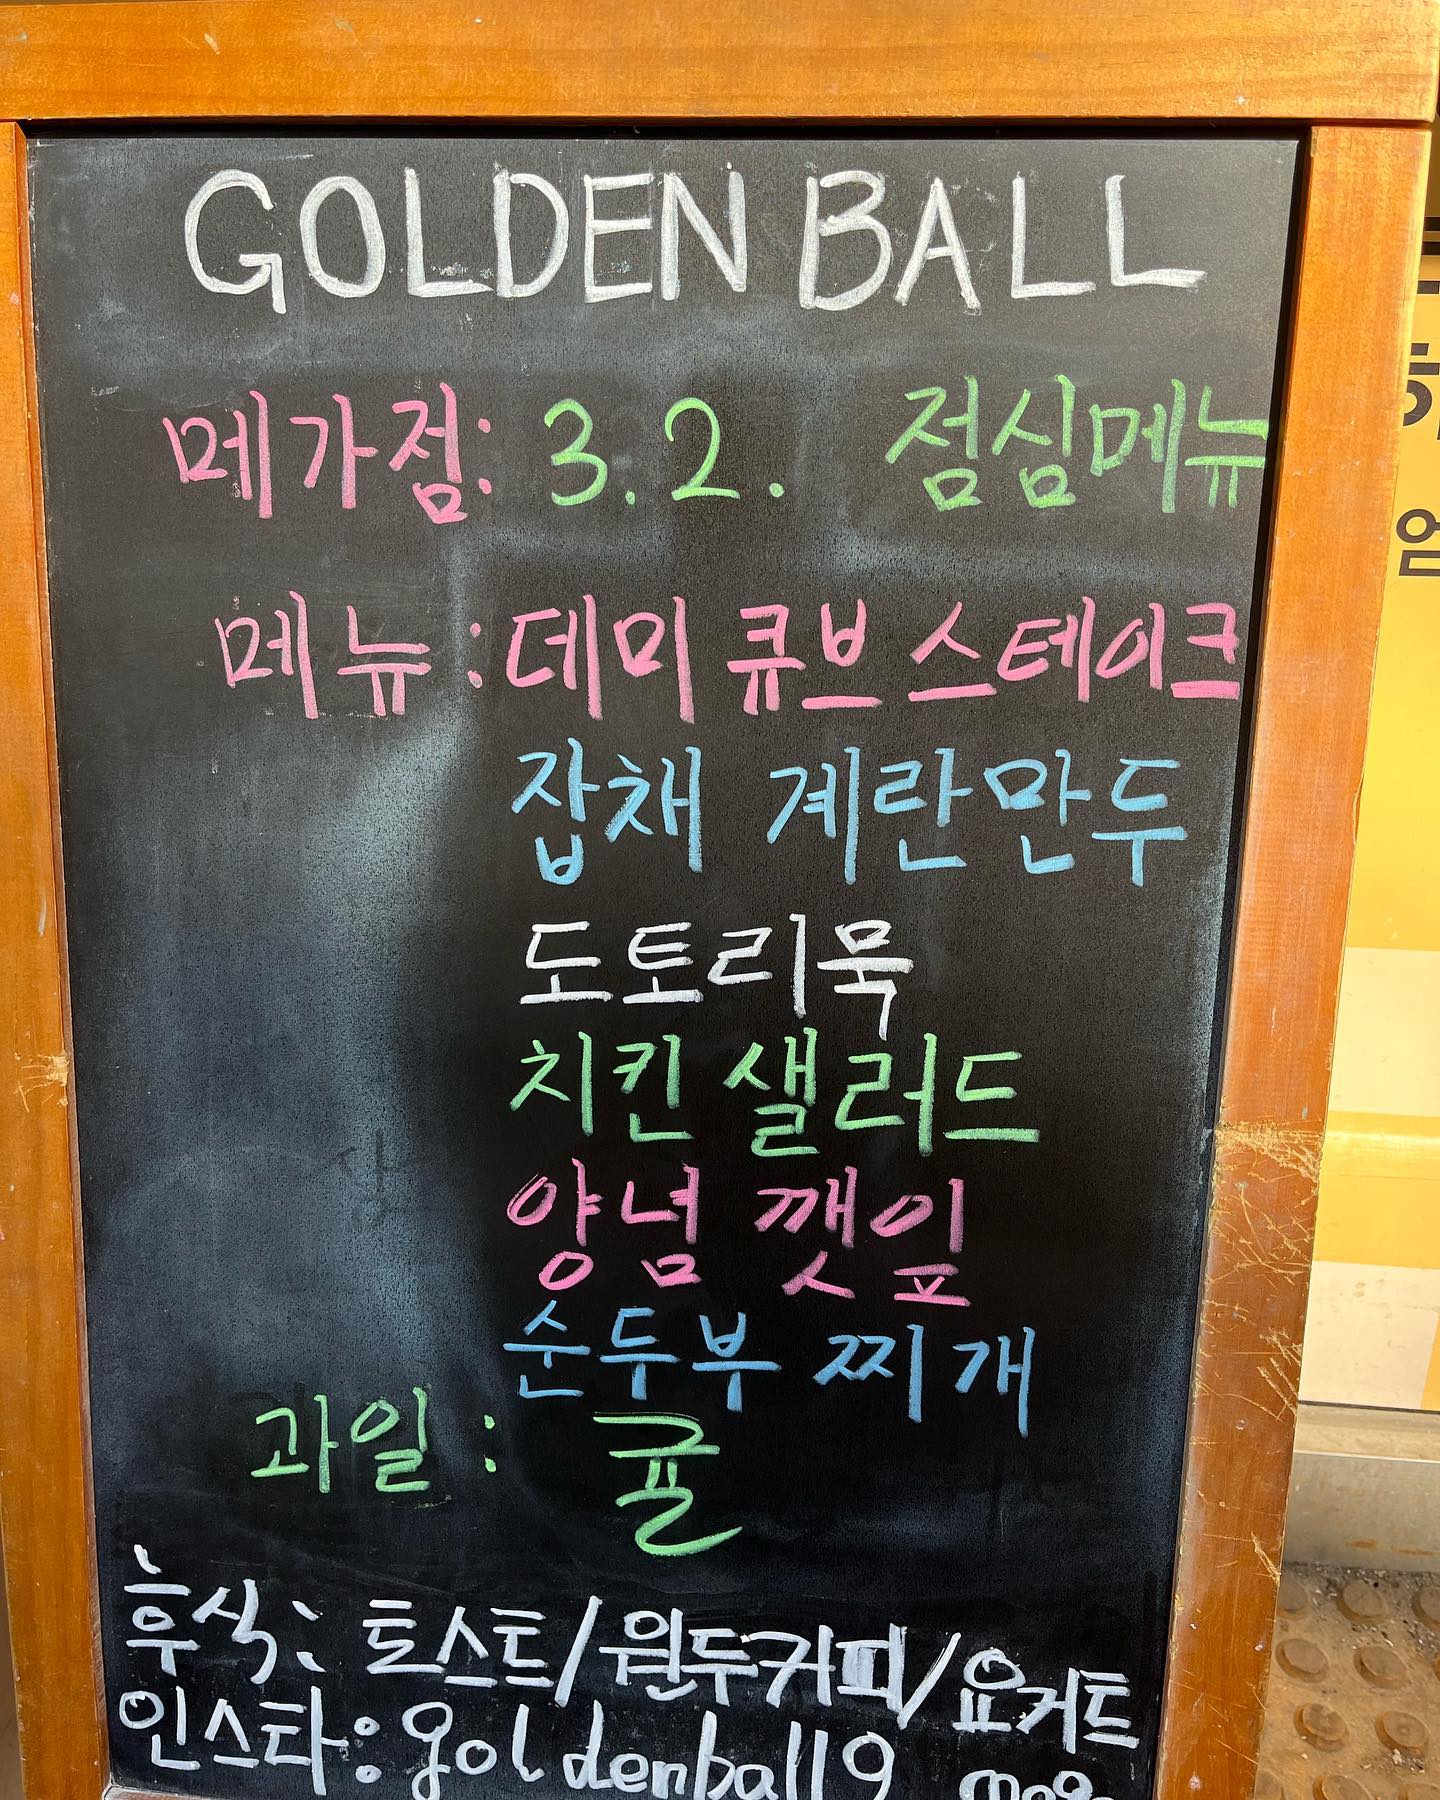 GOLDEN BALL
메가점: 3.2. 점심메뉴
메뉴: 데미 큐브 스테이크
잡채 계란만두
도토리묵
치킨 샐러드
양념 깻잎
순두부 찌개
과일: 귤
후식: 토스트/원두커피/요거트
인스타: goldenball9